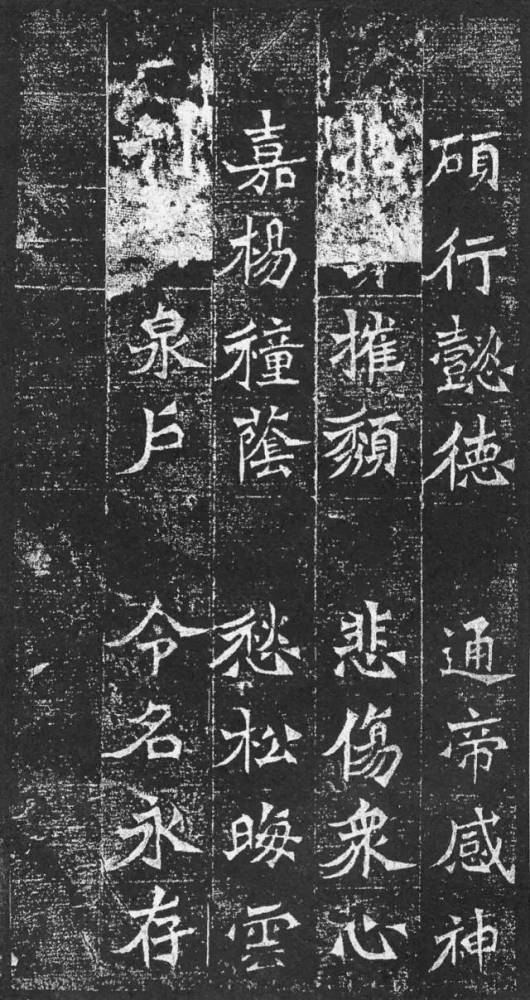 碩行懿德 通帝感神
摧頹 悲傷衆心
嘉楊穜蔭 愁松晦雲
泉戶 令名永存